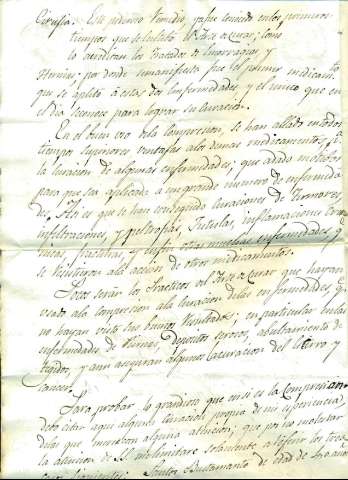 Cirugia. Este precioso remedio ya fue conocido en los primeros
tiempos que se trató el Arte de curar; como
lo acreditan los tratados de Emorragias y
Hernias: por donde se manifiesta fue el primer medicamto
que se aplicó á estas dos enfermedades y el unico que en
el dia se conoce para lograr su curacion.
En el buen uso de la Compresion, se han allado en todos
tiempos superiores ventajas a los demas medicamentos, pa
la curacion de algunas enfermedades; que a dado motivo
para que sea aplicada a un grande numero de enfermeda
des. Asi es que se han conseguido curaciones de Tumores,
infiltraciones, y fistulas, inflamaciones cro
nicas, fracturas, y otras muchas enfermedades q
se resistieron a la accion de otros medicamentos.
Pocos serán los Practicos del Arte de Curar que hayan
usado de la Compresion a la curacion de las enfermedades, q
no hayan visto sus buenos resultados; en particular en las
enfermedades de Hernias, depositos serosos, abultamiento de
tegidos, y aun aseguran algunos la curacion del Escirro y
Cancer.
Para probar lo grandioso que en si es la Compresion
debo citar aqui algunas curaciones propias de mi esperiencia,
dignas que merecen alguna atencion; que por no molestar
la atencion de S.S. me limitaré solamente a referir los tres
casos siguientes: Santos Bustamante de edad de